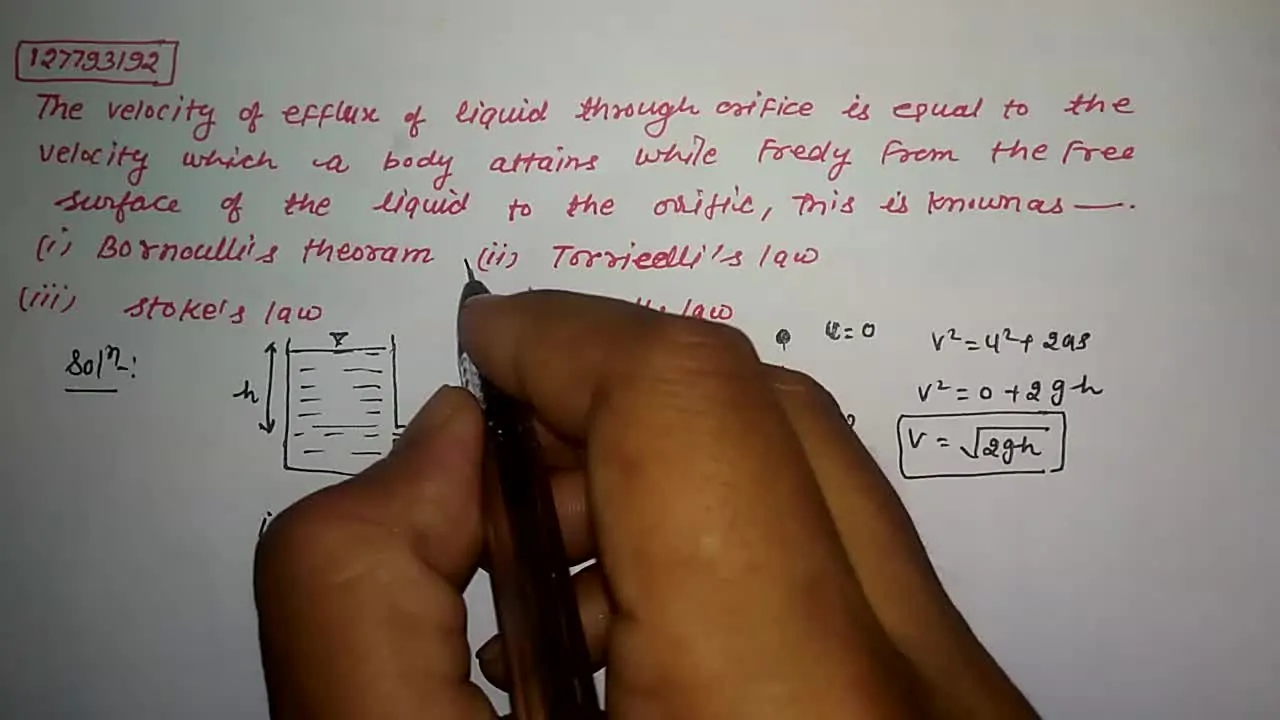 127793192
The velocity of efflux of liquid through orifice is equal to the
velocity which a body attains while Fredy From the Free
surface of the liquid to the orific, this is known as —.
(i) Bornoulli's theoram (ii) Torricelli's law
(iii) Stoke's law law
Solⁿ:
h
u=0
v² = u² + 2as
v² = 0 + 2gh
v = √2gh